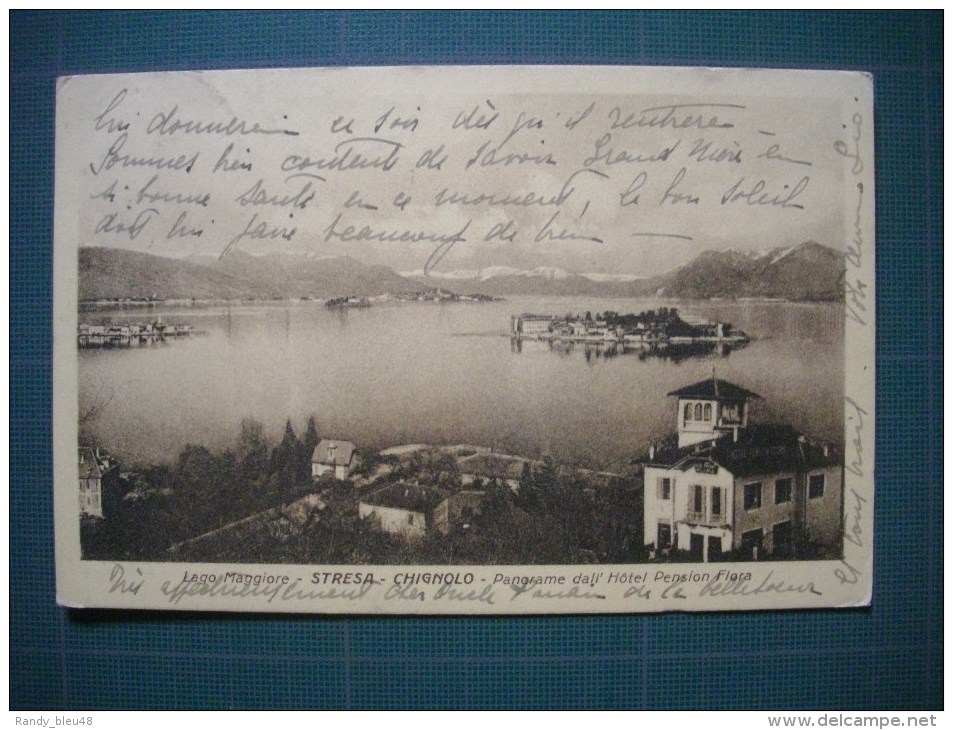 lui donnerein ce soir dès qu'il rentrera —
Sommes bien content de savoir Grand Mère en
si bonne santé en ce moment, le bon soleil
doit lui faire beaucoup de bien —
Lago Maggiore - STRESA - CHIGNOLO - Panorame dall' Hôtel Pension Flora
Très affectueusement cher Oncle de la belle soeur
et
Randy_bleu48
www.delcampe.net